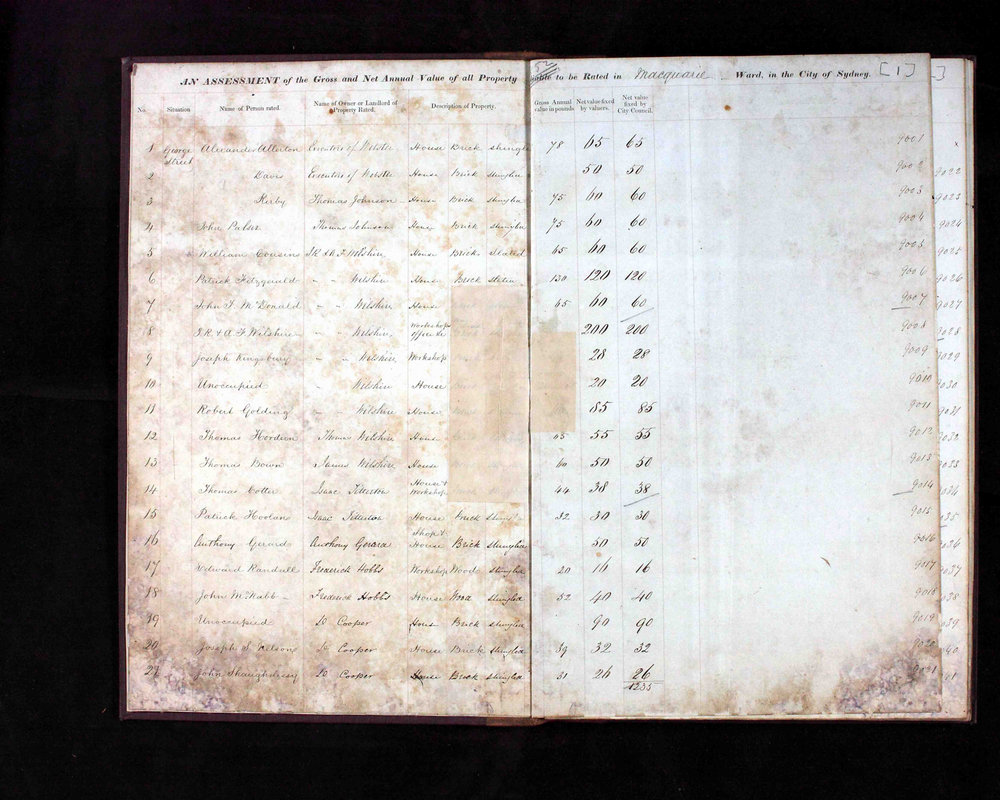 52
AN ASSESSMENT of the Gross and Net Annual Value of all Property liable to be Rated in Macquarie Ward, in the City of Sydney. [1]
No. Situation Name of Person rated. Name of Owner or Landlord of Property Rated. Description of Property. Gross Annual value in pounds Net value fixed by valuers. Net value fixed by City Council.
1 George Street Alexander Allerton Executors of Webster House Brick Shingle 78 65 65 9001
2 Davis Executors of Webster House Brick Shingled 50 50 9002 9022
3 Kirby Thomas Johnson House Brick Shingled 75 60 60 9003 9023
4 John Palser Thomas Johnson House Brick Shingled 75 60 60 9004 9024
5 William Cousins J.R & A F Wilshire House Brick Slated 65 60 60 9005 9025
6 Patrick Fitzgerald " " Wilshire House Brick 130 120 120 9006 9026
7 John F. McDonald " " Wilshire House 65 60 60 9007 9027
8 J.R. & A. F Wilshire " " Wilshire Workshops Office &c 200 200 9008 9028
9 Joseph Kingsbury " " Wilshire Workshop 28 28 9009 9029
10 Unoccupied " Wilshire House 20 20 9010 9030
11 Robert Golding " " Wilshire House 85 85 9011 9031
12 Thomas Hordern Thomas Wilshire House 65 55 55 9012 9032
13 Thomas Bown James Wilshire House 60 50 50 9013 9033
14 Thomas Cotter Isaac Titterton House & Workshop 44 38 38 9014 9034
15 Patrick Hoolan Isaac Titterton House Brick Shingle 32 30 30 9015 9035
16 Anthony Gerard Anthony Gerard Shop & House Brick Shingled 50 50 9016 9036
17 Edward Randall Frederick Hobbs Workshop Wood Shingled 20 16 16 9017 9037
18 John McNabb Frederick Hobbs House Wood Shingled 52 40 40 9018 9038
19 Unoccupied D Cooper House Brick Shingled 90 90 9019
20 Joseph S. Nelson D Cooper House Brick Shingled 39 32 32 9020
21 John Shaughnessy D Cooper House Brick Shingled 31 26 26 9021
1235